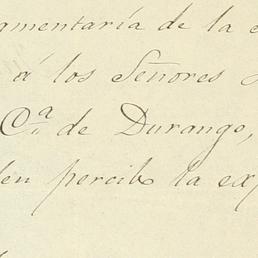 amentaría de la
á los Señores
Cª de Durango,
den percib la exp